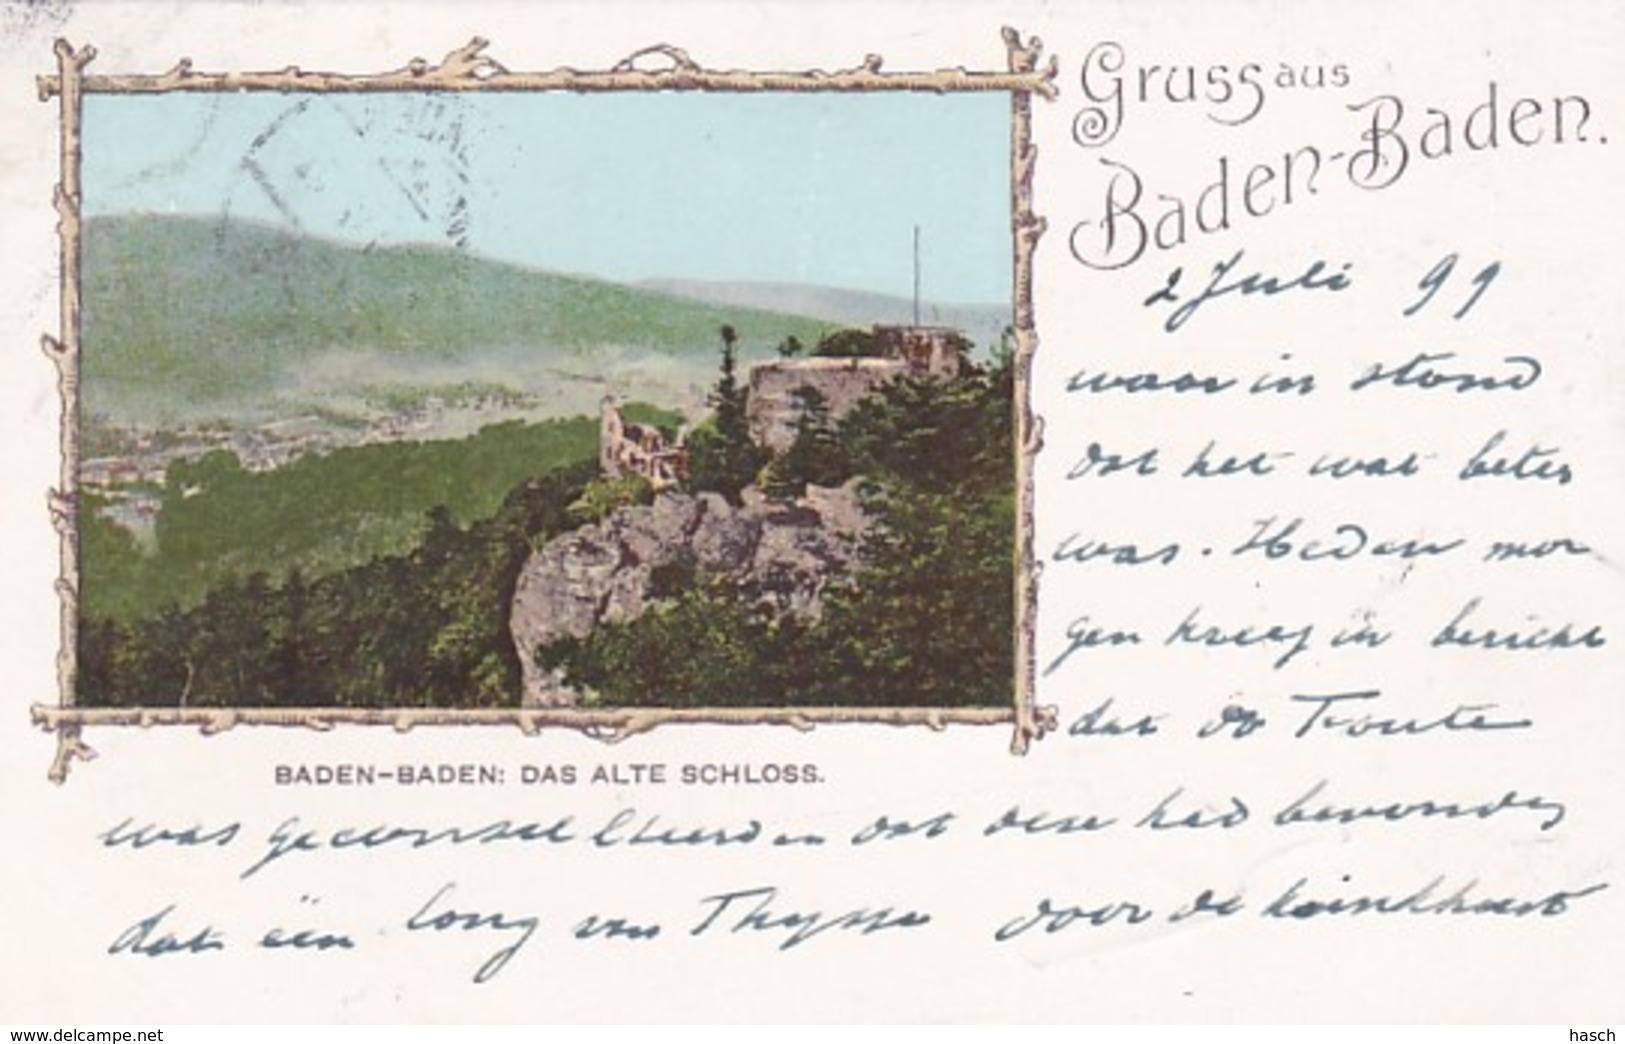 Gruss aus
Baden-Baden.
2 Juli 99
waar in stond
dat het wat beter
was. Heden mor
gen kreeg ik bericht
dat Dr Troute
was geconsulteerd en dat deze had bevonden
dat één long van Thysse door de kinkhoest
BADEN-BADEN: DAS ALTE SCHLOSS.
www.delcampe.net
hasch